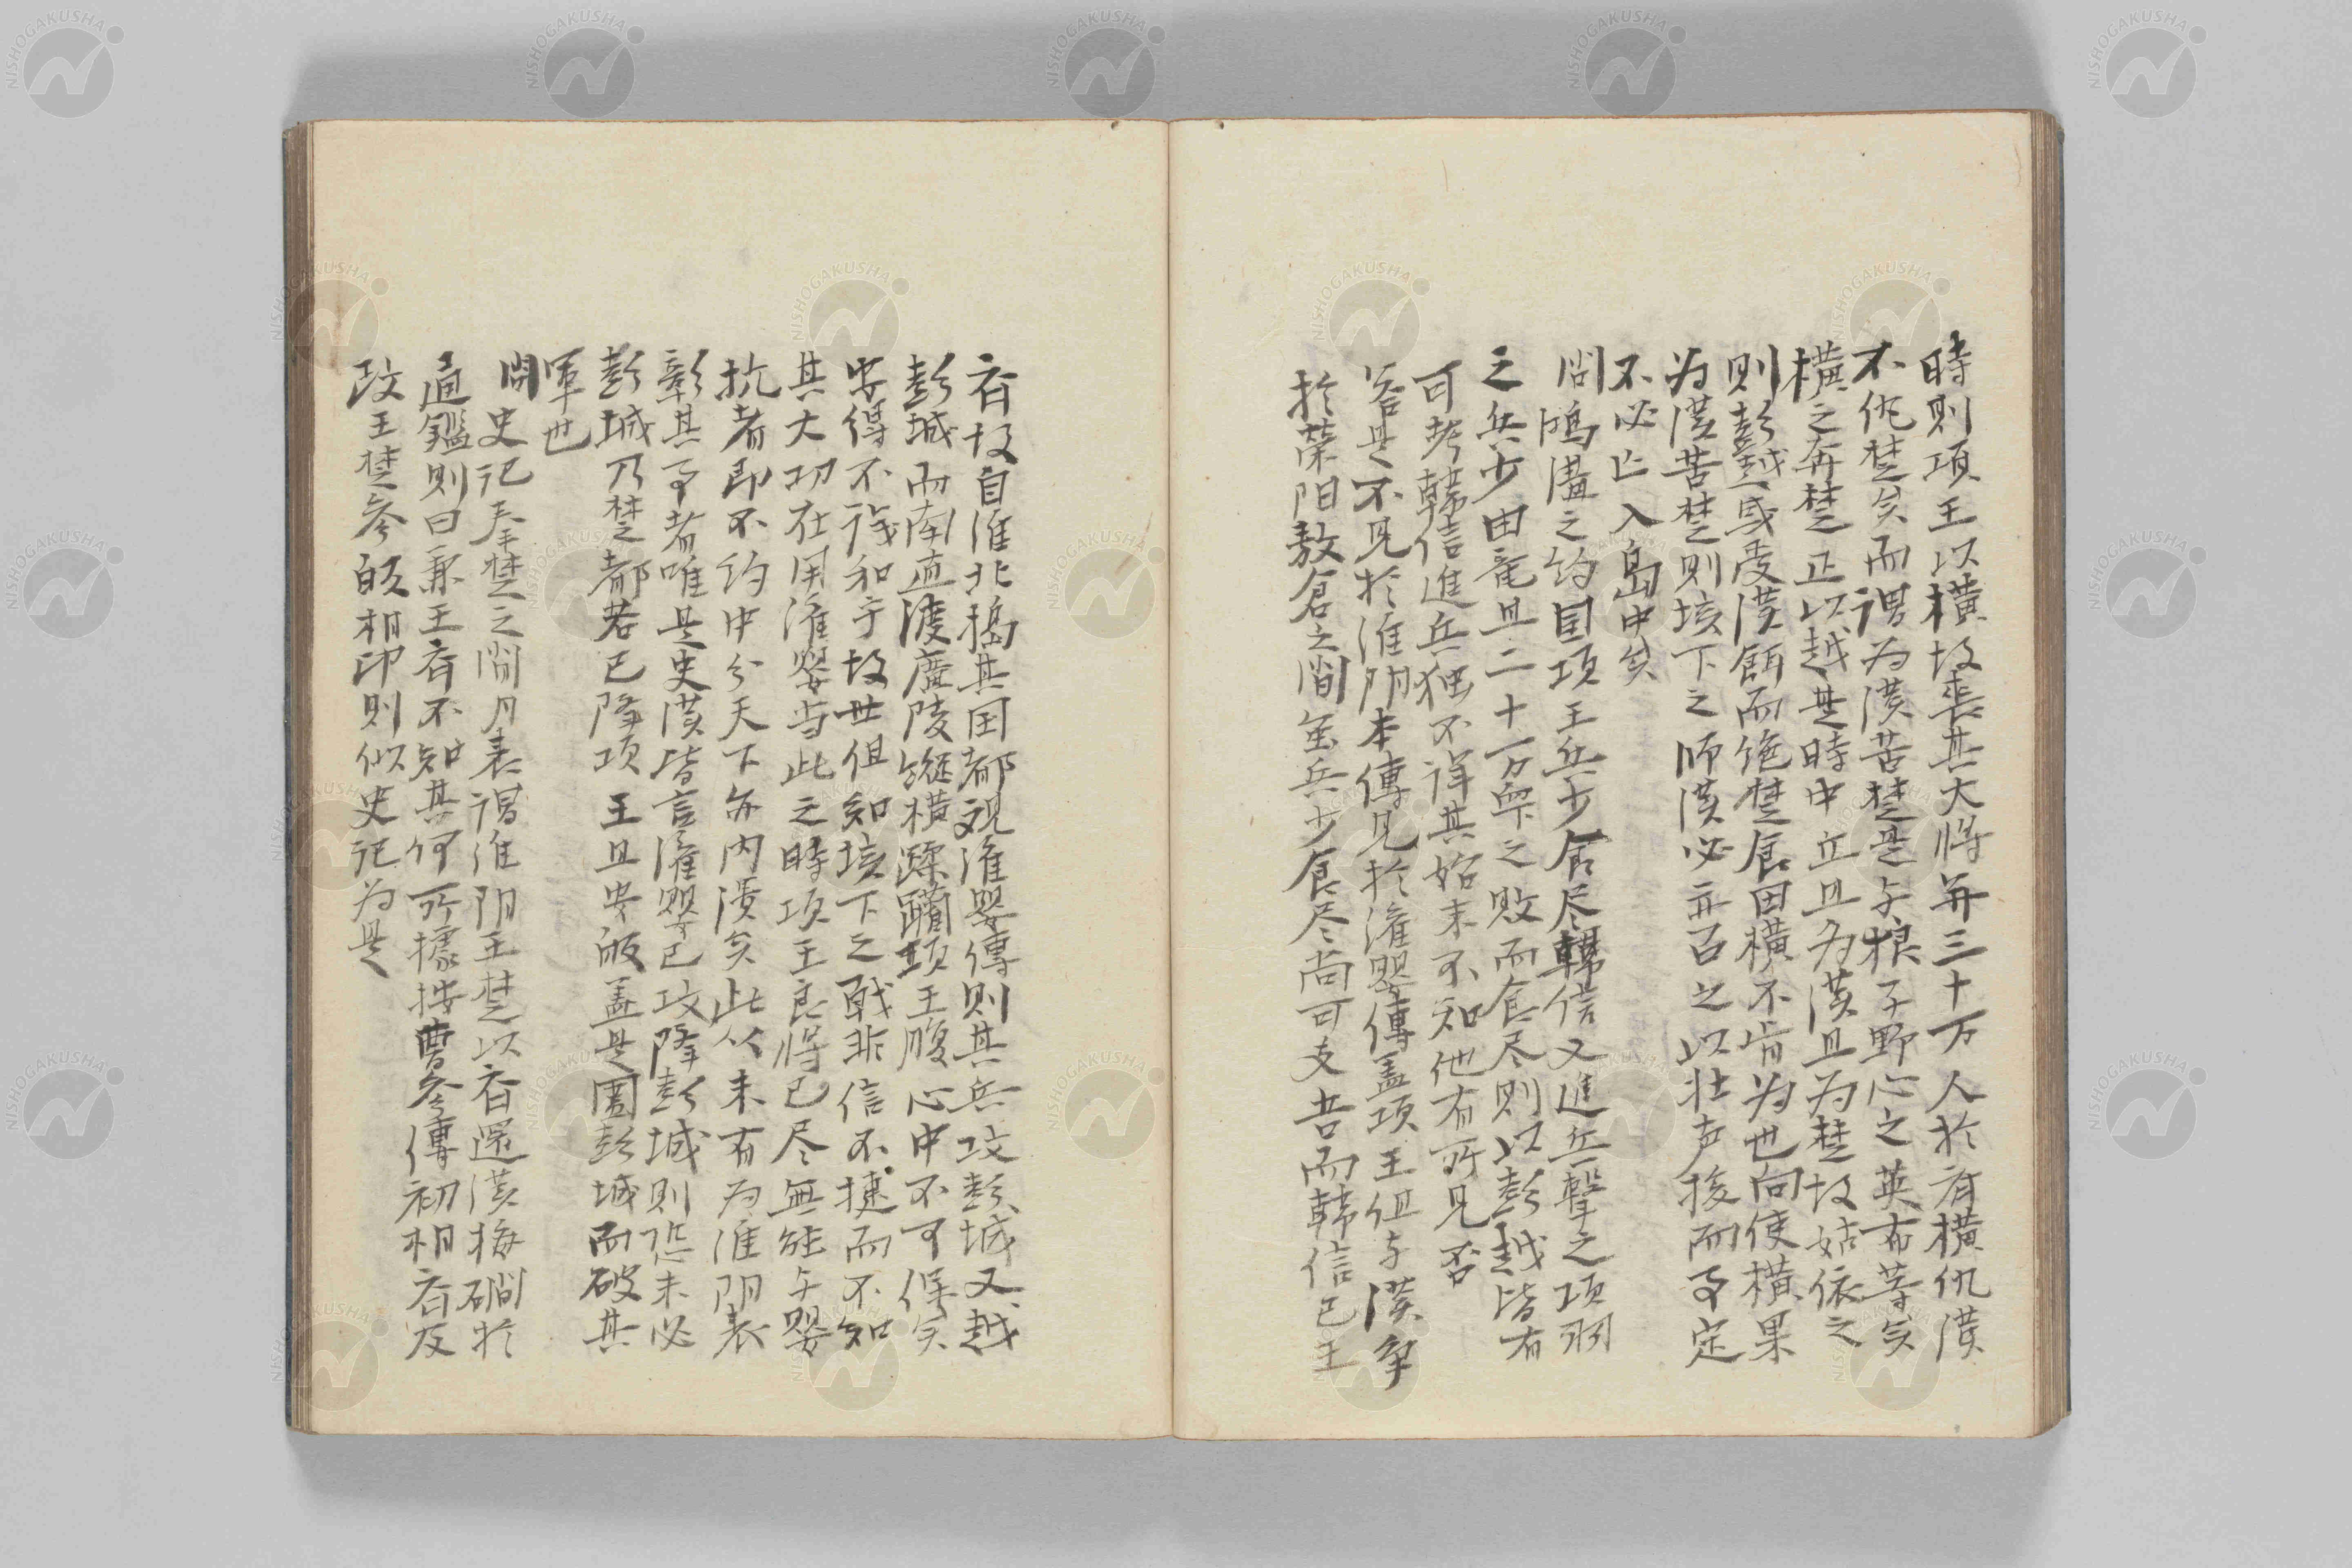 時則項王以横故喪其大将并三十万人於斉横仇漢
不仇楚矣而謂為漢苦楚是与狼子野心之英布等矣
横之奔楚正以越是時中立且為漢且為楚故姑依之
則彭越或受漢餌而絶楚食田横不肯為也向使横果
為漢苦楚則垓下之師漢必亦召之以壮声援而事定
不必亡入島中矣
問鴻溝之約因項王兵少食尽韓信又進兵撃之項羽
之兵少田竜且二十万衆之敗而食尽則以彭越皆有
可考韓信進兵独不詳其始末不知他有所見否
答是不見於淮陰本傳見於灌嬰傳盖項王但与漢争
於滎阳敖倉之間虽兵少食尽尚可支吾而韓信已王
斉故自淮北搗其国都観灌嬰傳則其兵攻彭城又越
彭城而南直渡廣陵縦横蹂躪項王腹心中不可保矣
安得不議和乎故世但知垓下之戦非信不捷而不知
其大功在用灌嬰当此之時項王良将已尽無能与嬰
抗者即不約中分天下亦内潰矣此从来有為淮阴表
彰其事者唯是史漢皆言灌嬰已攻降彭城則恐未必
彭城乃楚都若已降項王且安皈盖是圍彭城而破其
軍也
問史記秦楚之間月表謂淮阴王楚以斉還漢梅磵於
通鑑則曰兼王斉不知其何所據按曹参傳初相斉及
攻王楚参皈相印則似史記為是